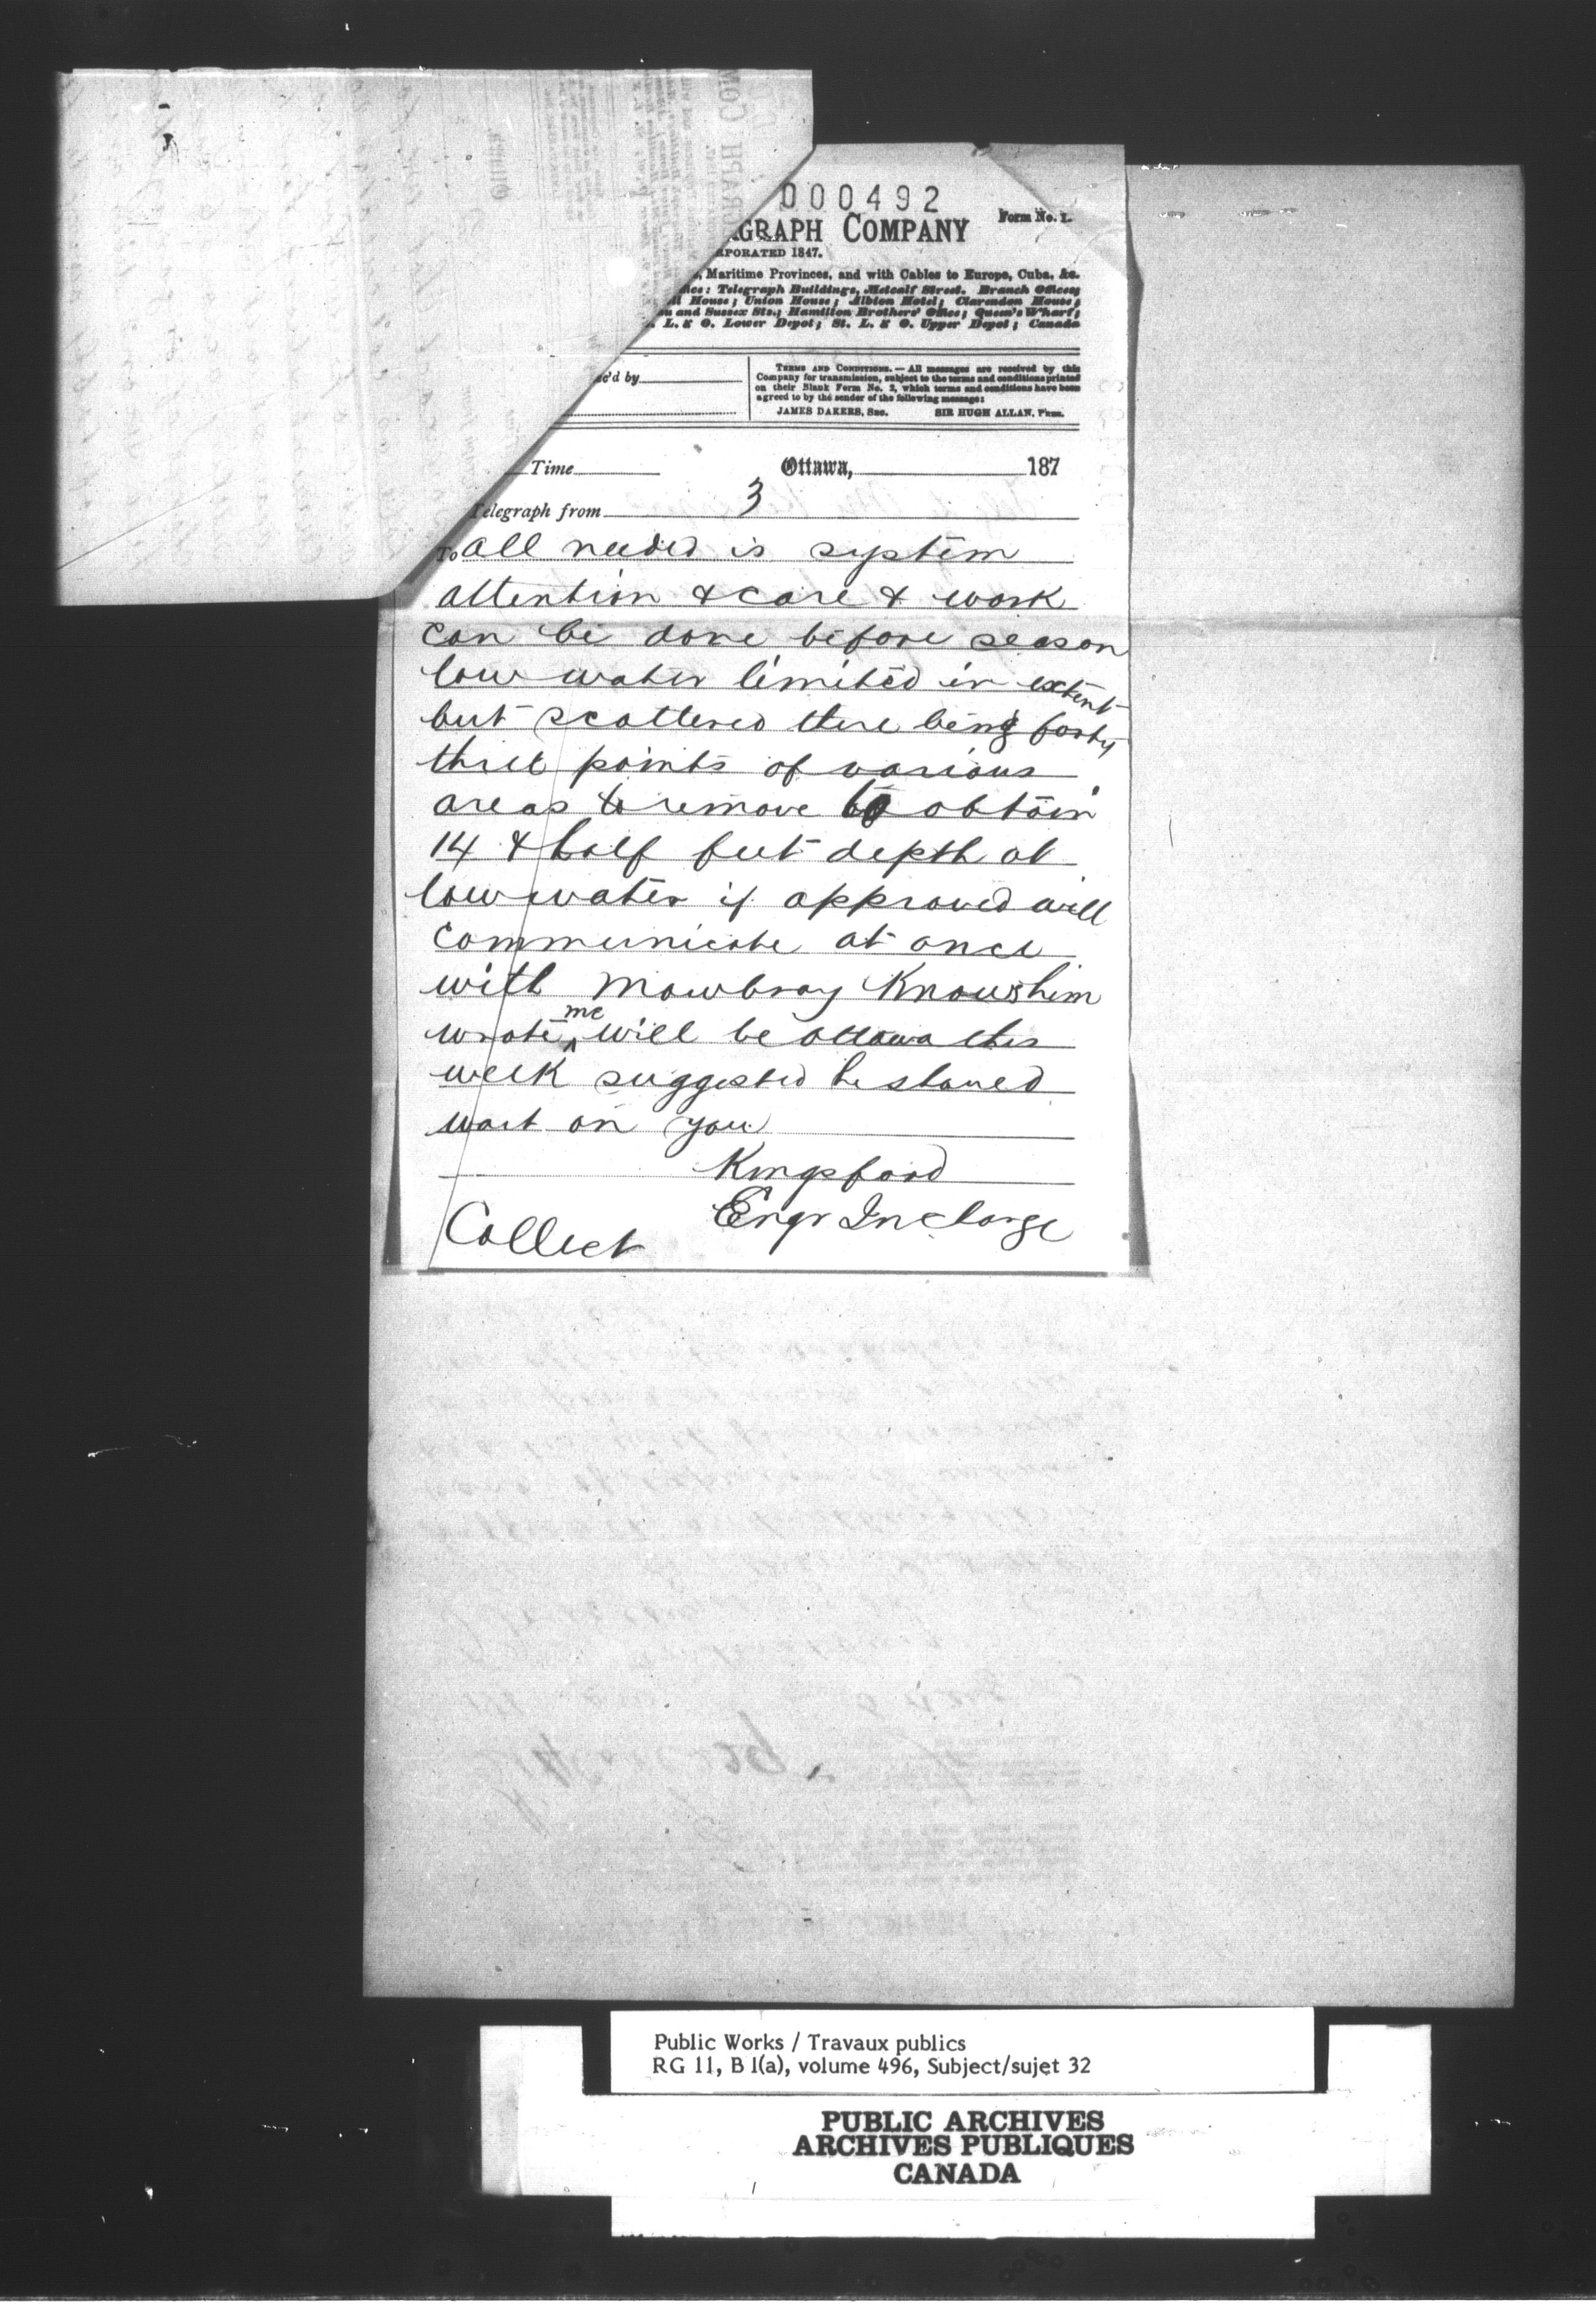 000492
GRAPH COMPANY
Form No. 1.
PORATED 1847.
, Maritime Provinces, and with Cables to Europe, Cuba, &c.
ice: Telegraph Buildings, Metcalf Street. Branch Offices
ll House; Union House; Albion Hotel; Clarendon House;
and Sussex Sts.; Hamilton Brothers' Office; Queen's Wharf;
L. & O. Lower Depot; St. L. & O. Upper Depot; Canada
c'd by
TERMS AND CONDITIONS. — All messages are received by this
Company for transmission, subject to the terms and conditions printed
on their Blank Form No. 2, which terms and conditions have been
agreed to by the sender of the following message:
JAMES DAKERS, Sec. SIR HUGH ALLAN, Pres.
Time Ottawa, 187
Telegraph from 3
To all needed is system
attention & care & work
can be done before season
low water limited in extent
but scattered there being forty
three points of various
areas to remove to obtain
14 & half feet depth at
low water if approved will
communicate at once
with Mowbray Knows him
wrote me will be Ottawa this
week suggested he should
wait on you
Kingsford
Engr In charge
Collect
Public Works / Travaux publics
RG 11, B 1(a), volume 496, Subject/sujet 32
PUBLIC ARCHIVES
ARCHIVES PUBLIQUES
CANADA